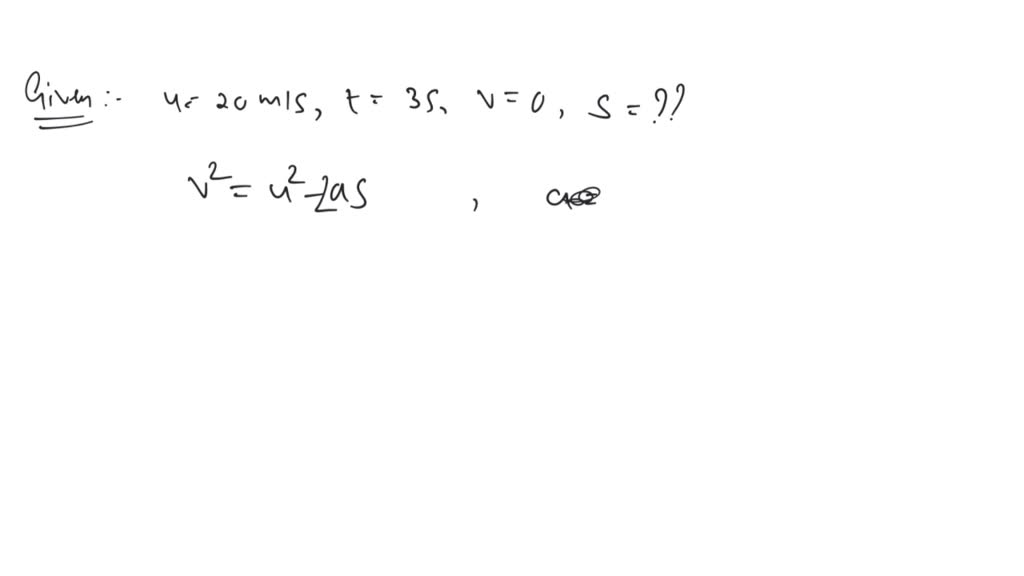 Given :- u = 20 m/s, t = 3s, v = 0, s = ??
v² = u² - 2as ,